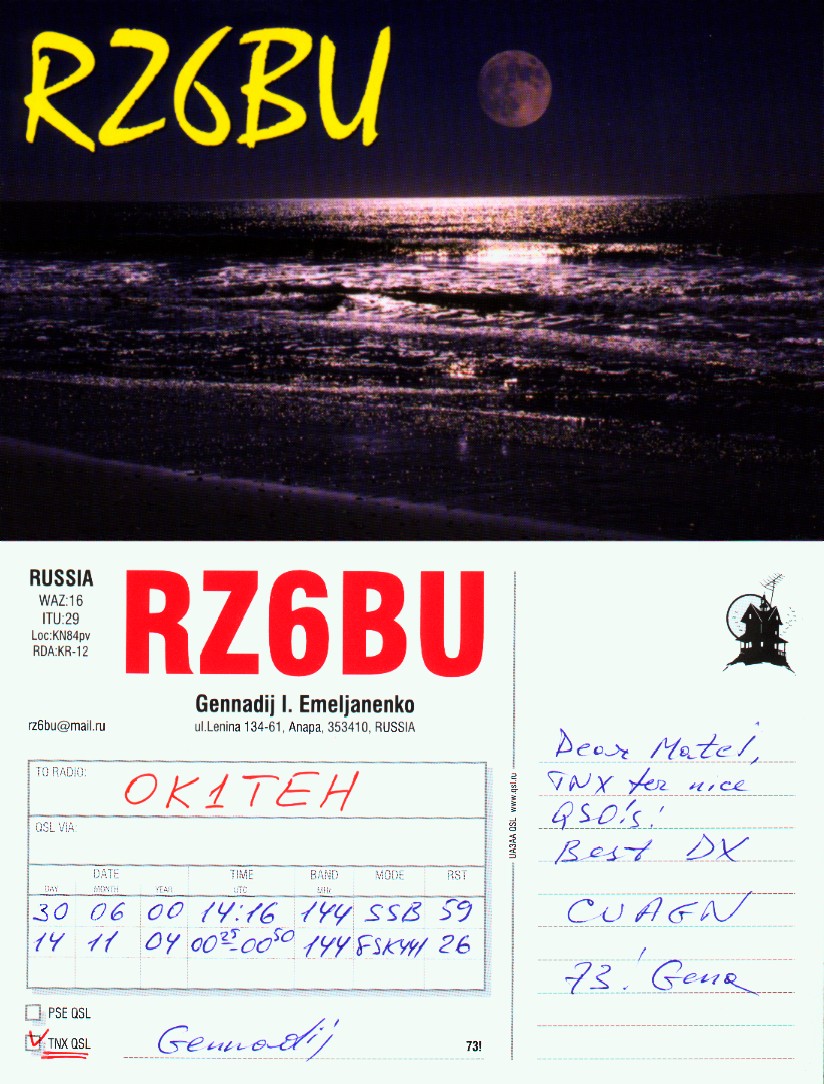 RZ6BU
RUSSIA
WAZ:16
ITU:29
Loc:KN84pv
RDA:KR-12
RZ6BU
Gennadij I. Emeljanenko
rz6bu@mail.ru
ul.Lenina 134-61, Anapa, 353410, RUSSIA
TO RADIO: OK1TEH
QSL VIA:
DATE TIME BAND MODE RST
DAY MONTH YEAR UTC MHz
30 06 00 14:16 144 SSB 59
14 11 04 00²⁵-00⁵⁰ 144 FSK441 26
PSE QSL
TNX QSL
Gennadij
73!
UA3AA QSL www.qsl.ru
Dear Matej,
TNX fer nice
QSO's!
Best DX
CUAGN
73! Gena